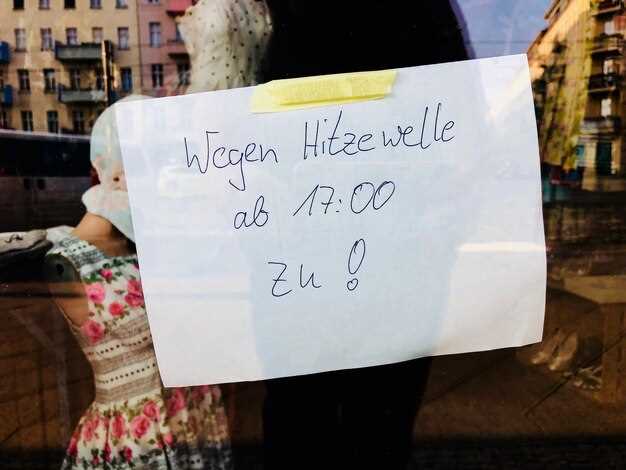 Wegen Hitzewelle
ab 17:00
zu!